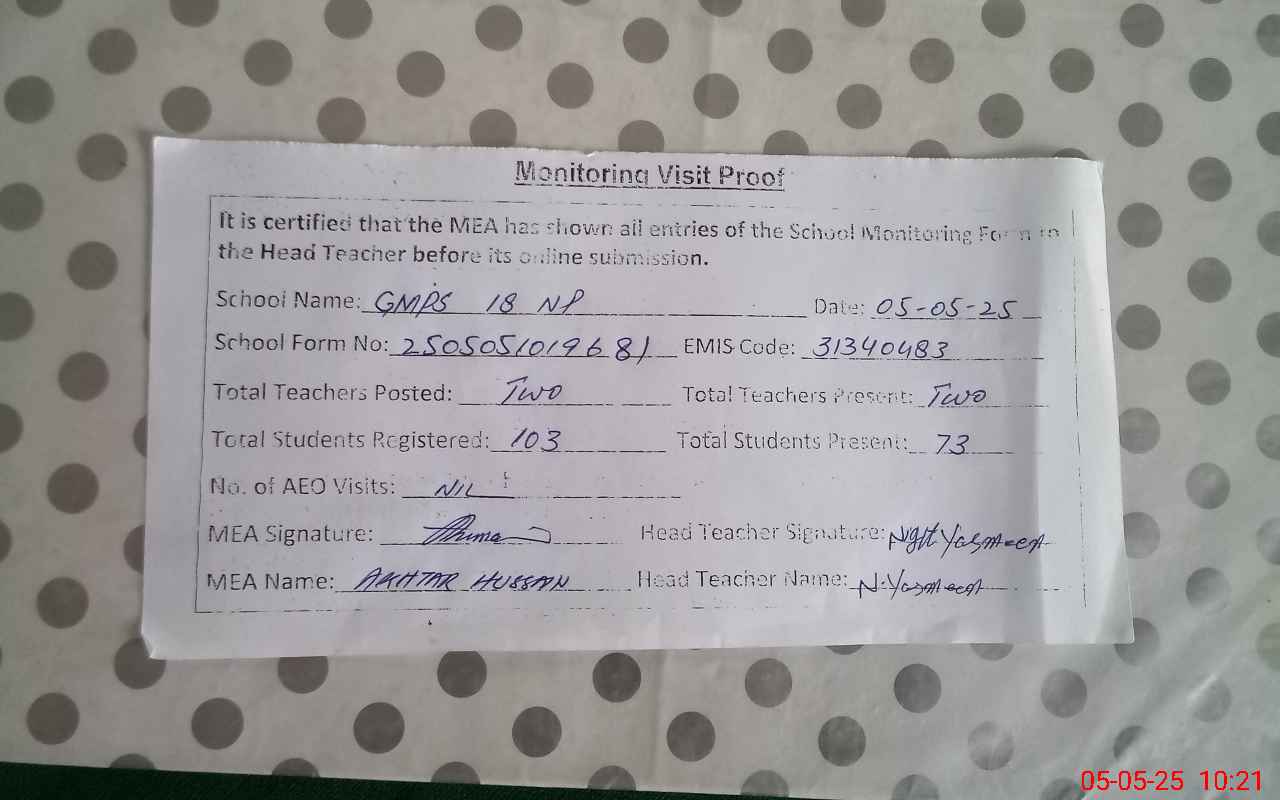 Monitoring Visit Proof
It is certified that the MEA has shown all entries of the School Monitoring Form to
the Head Teacher before its online submission.
School Name: GMPS 18 NP Date: 05-05-25
School Form No: 2505051019681 EMIS Code: 31340483
Total Teachers Posted: Two Total Teachers Present: Two
Total Students Registered: 103 Total Students Present: 73
No. of AEO Visits: NIL
MEA Signature: Head Teacher Signature:
MEA Name: AKHTAR HUSSAN Head Teacher Name:
05-05-25 10:21